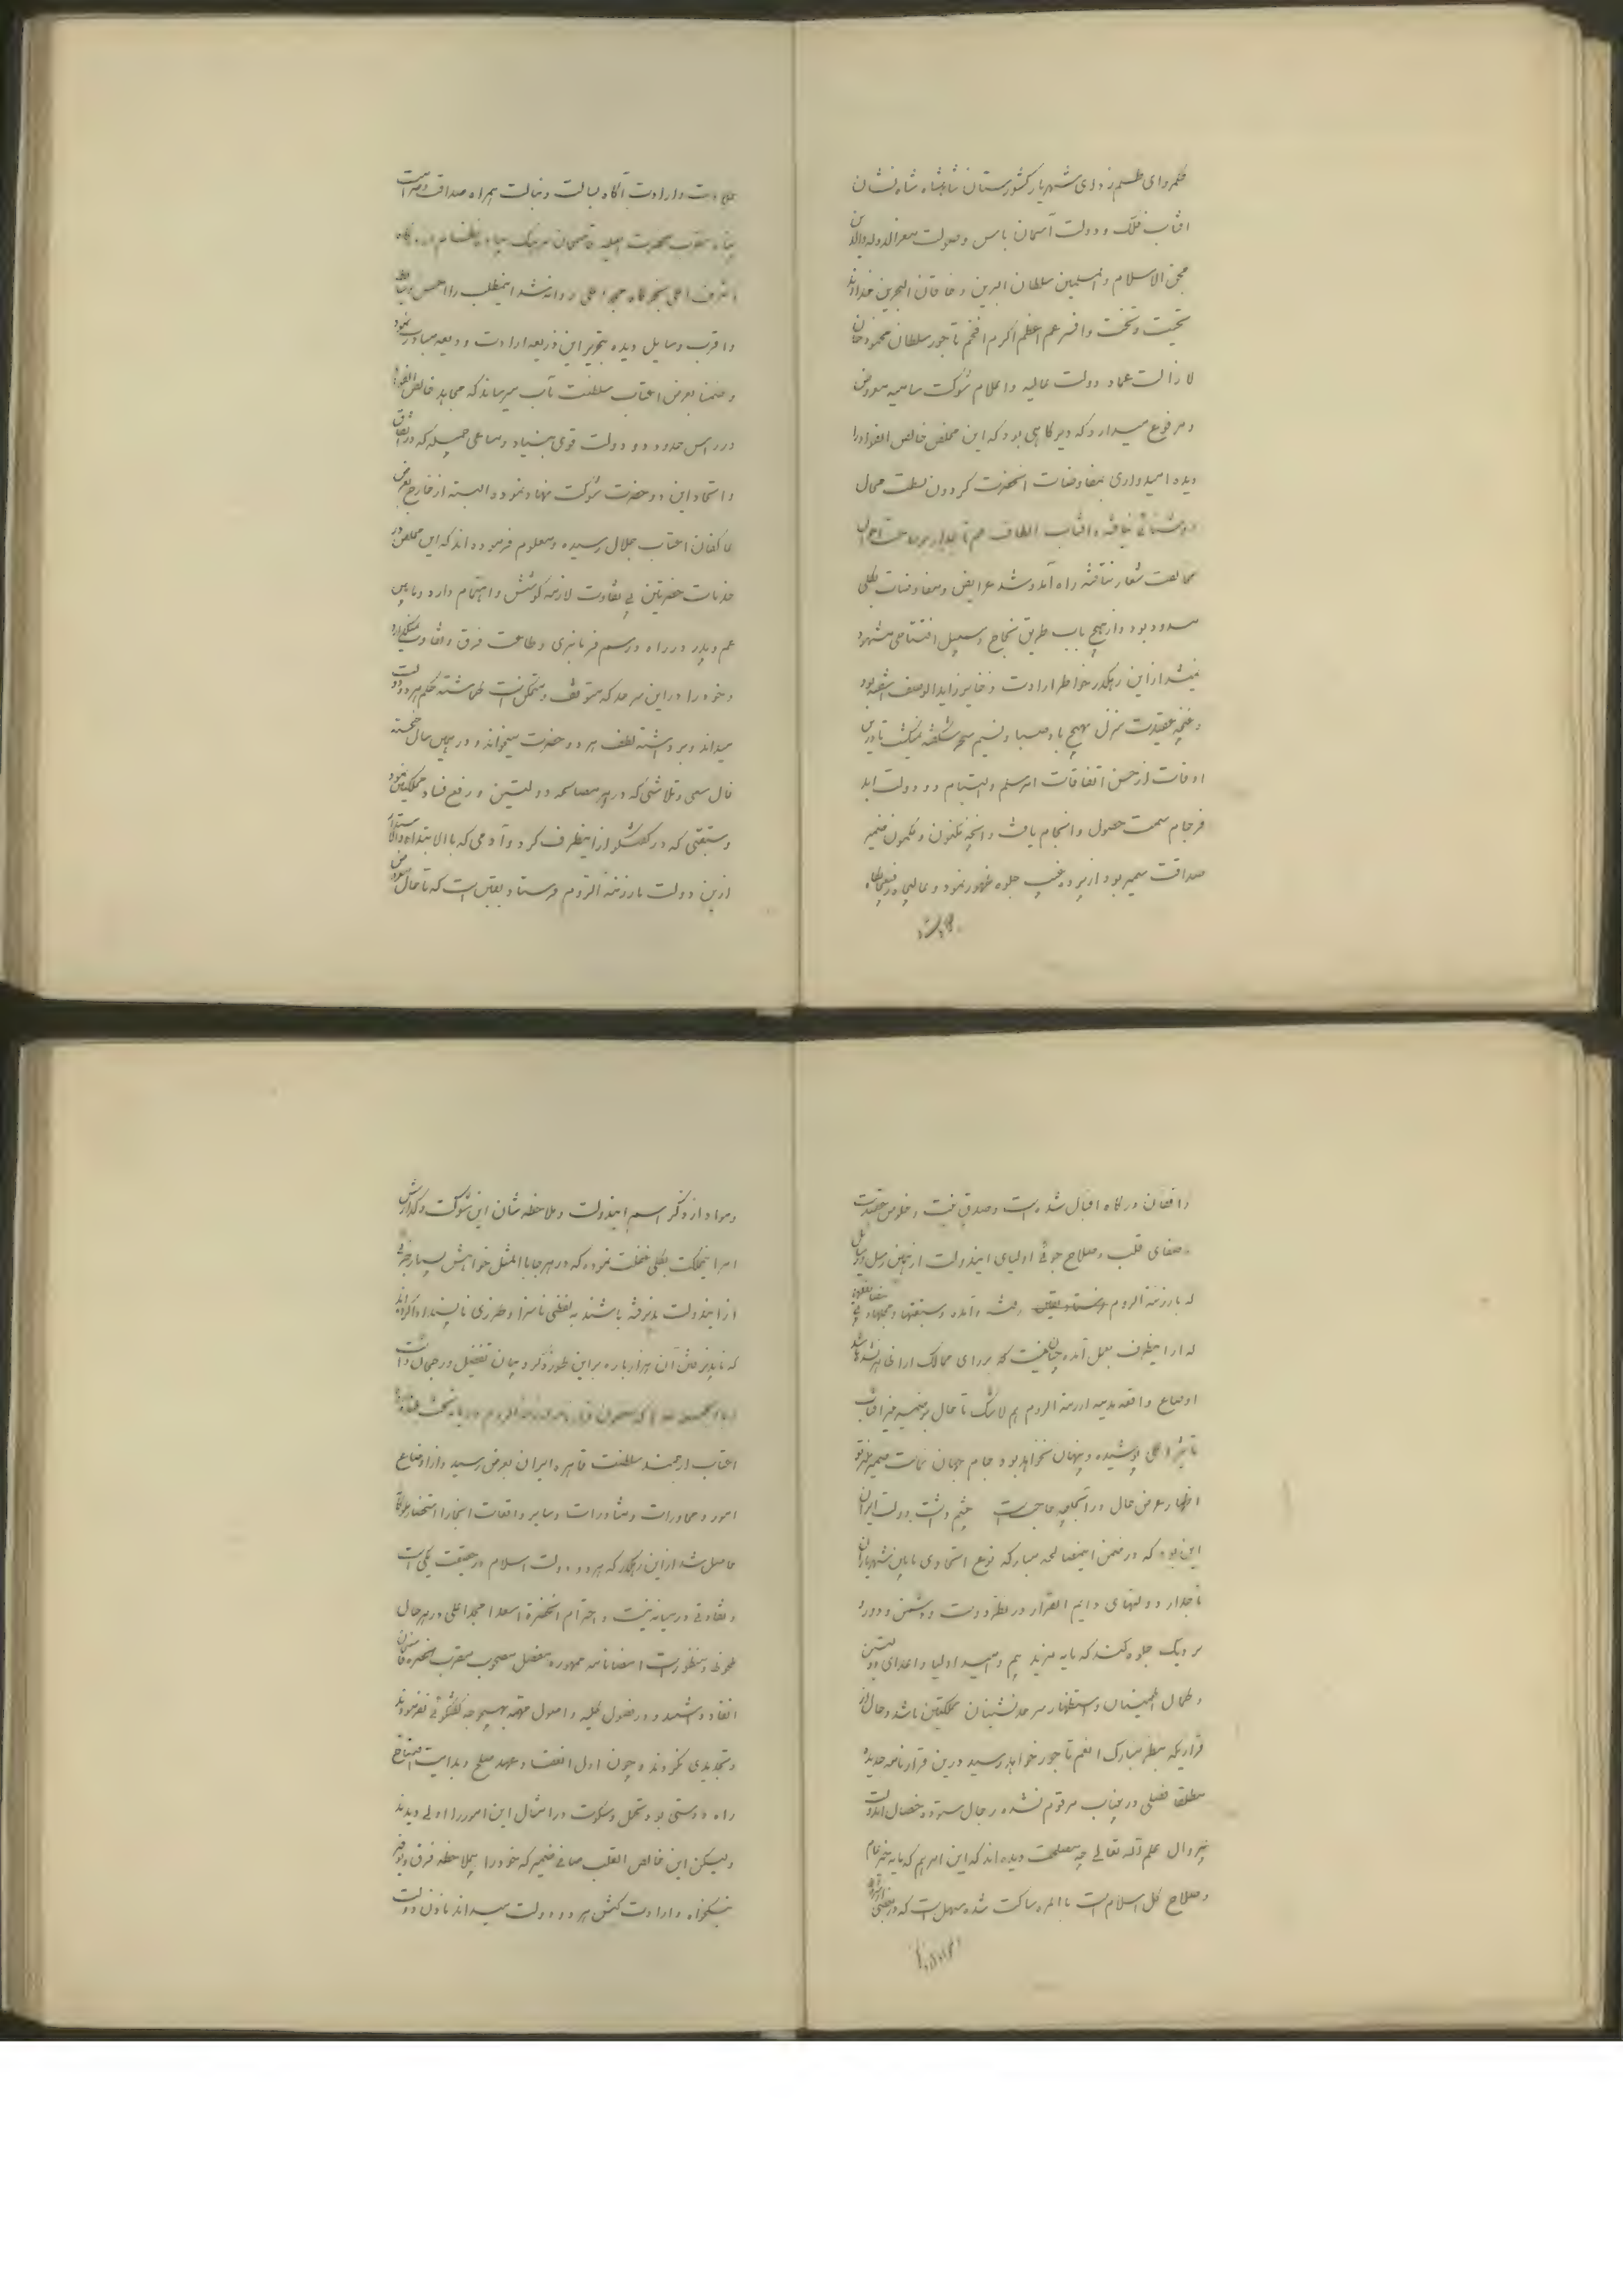 قلمروای ظلم زدای شهریار کشورستان شاهنشاه شاه نشان
افتاب فلک و دولت آسمان باس و صولت معز الدوله والدین
الاسلام و المسلمین سلطان البرین و خاقان البحرین خداوند
تخت و بخت و افسر عم اعظم اکرم افخم تاجور سلطان محمود خان
لا زالت عماد دولت عالیه و اعلام شوکت سامیه معروض
و مرفوع میدارد که دیر گاهی بود که این مخلص خالص الفواد را
دیده امیدواری بمفاوضات انحضرت گردون بسطت محال
روشنائی نیافته و افتاب الطاف عم تاجدار بر ساحت احوال
مخالصت شعار نتافته راه آمد و شد عرایض و مفاوضات بکلی
مسدود بود و از هیچ باب طریق نجاح و سبیل افتتاحی مشهود
نمیشد از این رهگذر خواطر ارادت و خایر زاید الوصف
و غنچه عقیدت منزل بهیچ باد صبا و نسیم سحر شکفته نمیگشت تا درین
اوقات از حسن اتفاقات امر سلم و التیام دو دولت ابد
فرجام سمت حصول و انجام یافت و انچه مکنون و مکمون ضمیر
صداقت سمیر بود از پرده غیب جلوه ظهور نمود و عالیجاه رفیع جایگاه
و ارادت آگاه بسالت و نبالت همراه صداقت و صرامت
پناه مقرب الحضرت العلیه قاسمخان سرهنگ سپاه
اشرف اعلی روانه شد اینمطلب را احسن وسایط
و اقرب وسایل دیده بتحریر این ذریعه ارادت و دیعه مبادرت نمود
و ضمنا بعرض اعتاب سلطنت مآب میرساند که مجاهد خالص الفواد
در راس حدود دو دولت قوی بنیاد و مساعی جمیله که در اتفاق
و اتحاد این دو حضرت شوکت نهاد نموده البته از خارج بعرض
عاکفان اعتاب جلال رسیده و معلوم فرموده اند که این مخلص در
خدمات حضرتین بی تفاوت لازمه کوشش و اهتمام دارد و مابین
عم و پدر در راه و رسم فرمانبری و طاعت فرق و تفاوت نمیگذارد
و خود را در این سرحد که متوقف و متمکن است گماشته حکم هر دو دولت
میداند و برداشته لطف هر دو حضرت میخواند و در همین سال خجسته
فال سعی و تلاشی که در امر مصالحه دولتین و رفع فساد مملکتین نمود
و سبقتی که در گفتگو از اینطرف کرد و آدمی که بالابتداه و الاستبداد
ازین دولت بارزنة الروم فرستاد یقین است که تا حال معروض
واقفان درگاه اقبال شده است و صدق نیت و خلوص عقیدت
و صفای قلب و صلاح جوئی اولیای ایندولت از همین رسل و رسایل
که بارزنة الروم رفته و آمده و سبقتها و عجلتها
که از اینطرف بعمل آمده چنان نیست که بررای ممالک ارا ظاهر نشده باشد
اوضاع واقعه بدیه ارزنة الروم هم لاشک تا حال بر ضمیر منیر افتاب
تاثیر اعلی پوشیده و پنهان نخواهد بود و جام جهان نماست ضمیر منیر تو
اظهار عرض حال در آنجا چه حاجت است چشم داشت دولت ایران
این بود که در ضمن اینمصالحه مبارکه نوع اتحادی مابین شهریاران
تاجدار و دولتهای دایم القرار در نظر دوست و دشمن و دور و
نزدیک جلوه کند که مایه مزید بیم و امید اولیا و اعدای دولتین
و کمال اطمینان و استظهار سرحد نشینان مملکتین باشد و حال از
قراریکه بنظر مبارک افخم تاجور خواهد رسید درین قرارنامه جدیده
مطلقا فصلی درینباب مرقوم نشده رجال ستوده خصال ایندولت
بیزوال علم الله تعالی چه مصلحت دیده اند که این امر هم که مایه خیر تمام
و صلاح کل اسلام است بالمره ساکت شده سهل است که در بعضی
و مواد از ذکر اسم ایندولت و ملاحظه شان این شوکت و گذارش
امرا اینمملکت بکلی غفلت نموده که در هر جا با المثل خواهش بسیار جزئی
از ایندولت پذیرفته باشند به لفظی ناسزا و طرزی ناپسند ادا کرده اند
که ناپذیرفتن آن هزار باره بر این طور ذکر و بیان تفضیل و رجحان داشت
اعتاب ارجمند سلطنت قاهره ایران بعرض رسید و از اوضاع
امور و محاورات و مشاورات و سایر واقعات انجا را استحضار موفا
حاصل شد از این رهگذر که هر دو دولت اسلام در حقیقت یکی است
و تفاوتی در میانه نیست و احترام انحضرة اسعد امجد اعلی در هر حال
ملحوظ و منظور است امضا نامه ممهوره مفصل مصحوب مقرب الحضره قاسمخان
انفاذ داشتند و در فصول کلیه و اصول مهمه بهیچوجه گفتگوئی نفرمودند
و تجدیدی نکردند و چون اول انعقاد عهد صلح و بدایت افتتاح
راه دوستی بود تحمل و سکوت در امثال این امور را اولی دیدند
و لیکن این خالص القلب صافی ضمیر که خود را بملاحظه فرق و توفیر
نیکخواه و ارادت کیش هر دو دولت میداند ماذون دولت